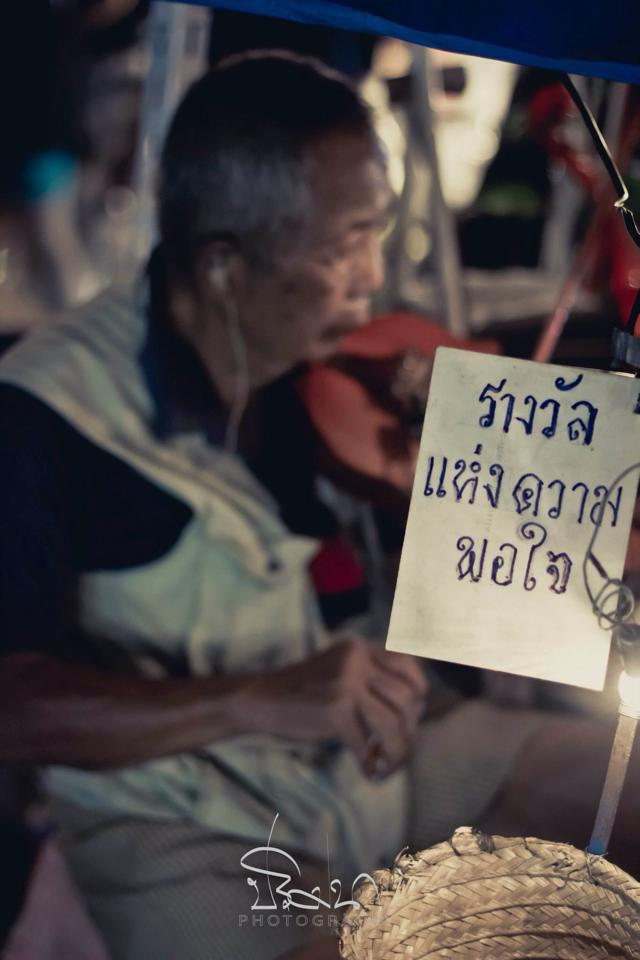 รางวัล
แห่งความ
พอใจ
PHOTOGRAPHY